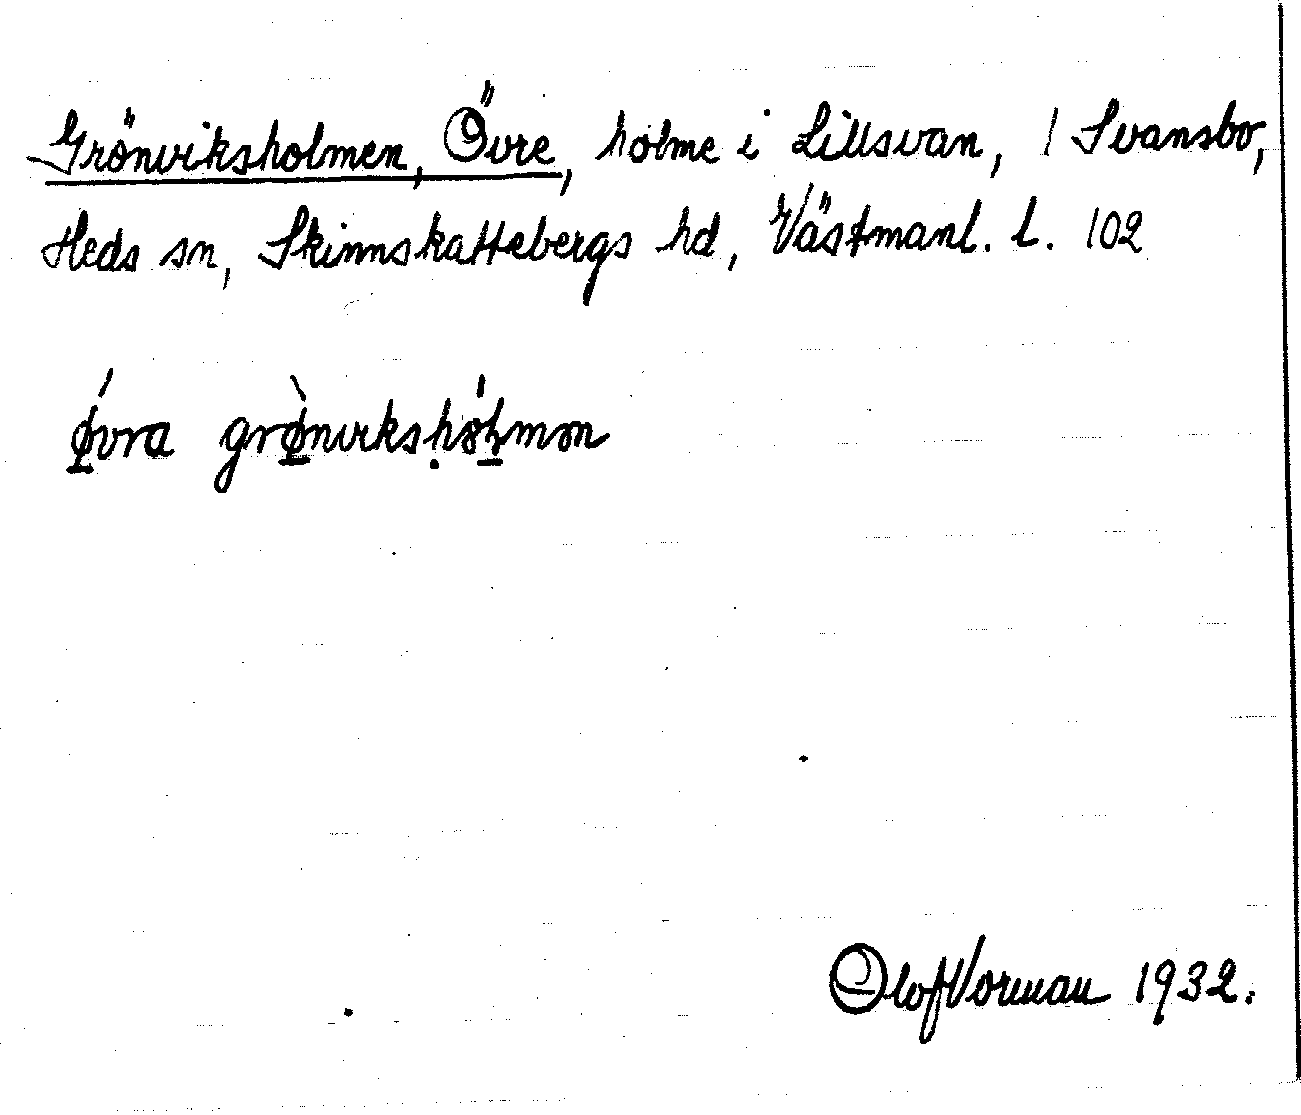 Grönviksholmen, Övre, holme i Lillsvan, / Svansbo,
Heds sn, Skinnskattebergs hd, Västmanl. l. 102
ǿvra grø̀nvikshólmɘn
Olof Vorman 1932.